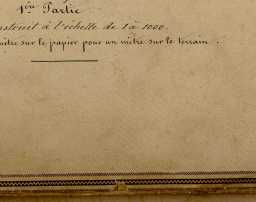 1ère Partie
construit à l'échelle de 1 à 1000.
mètre sur le papier pour un mètre sur le terrain.